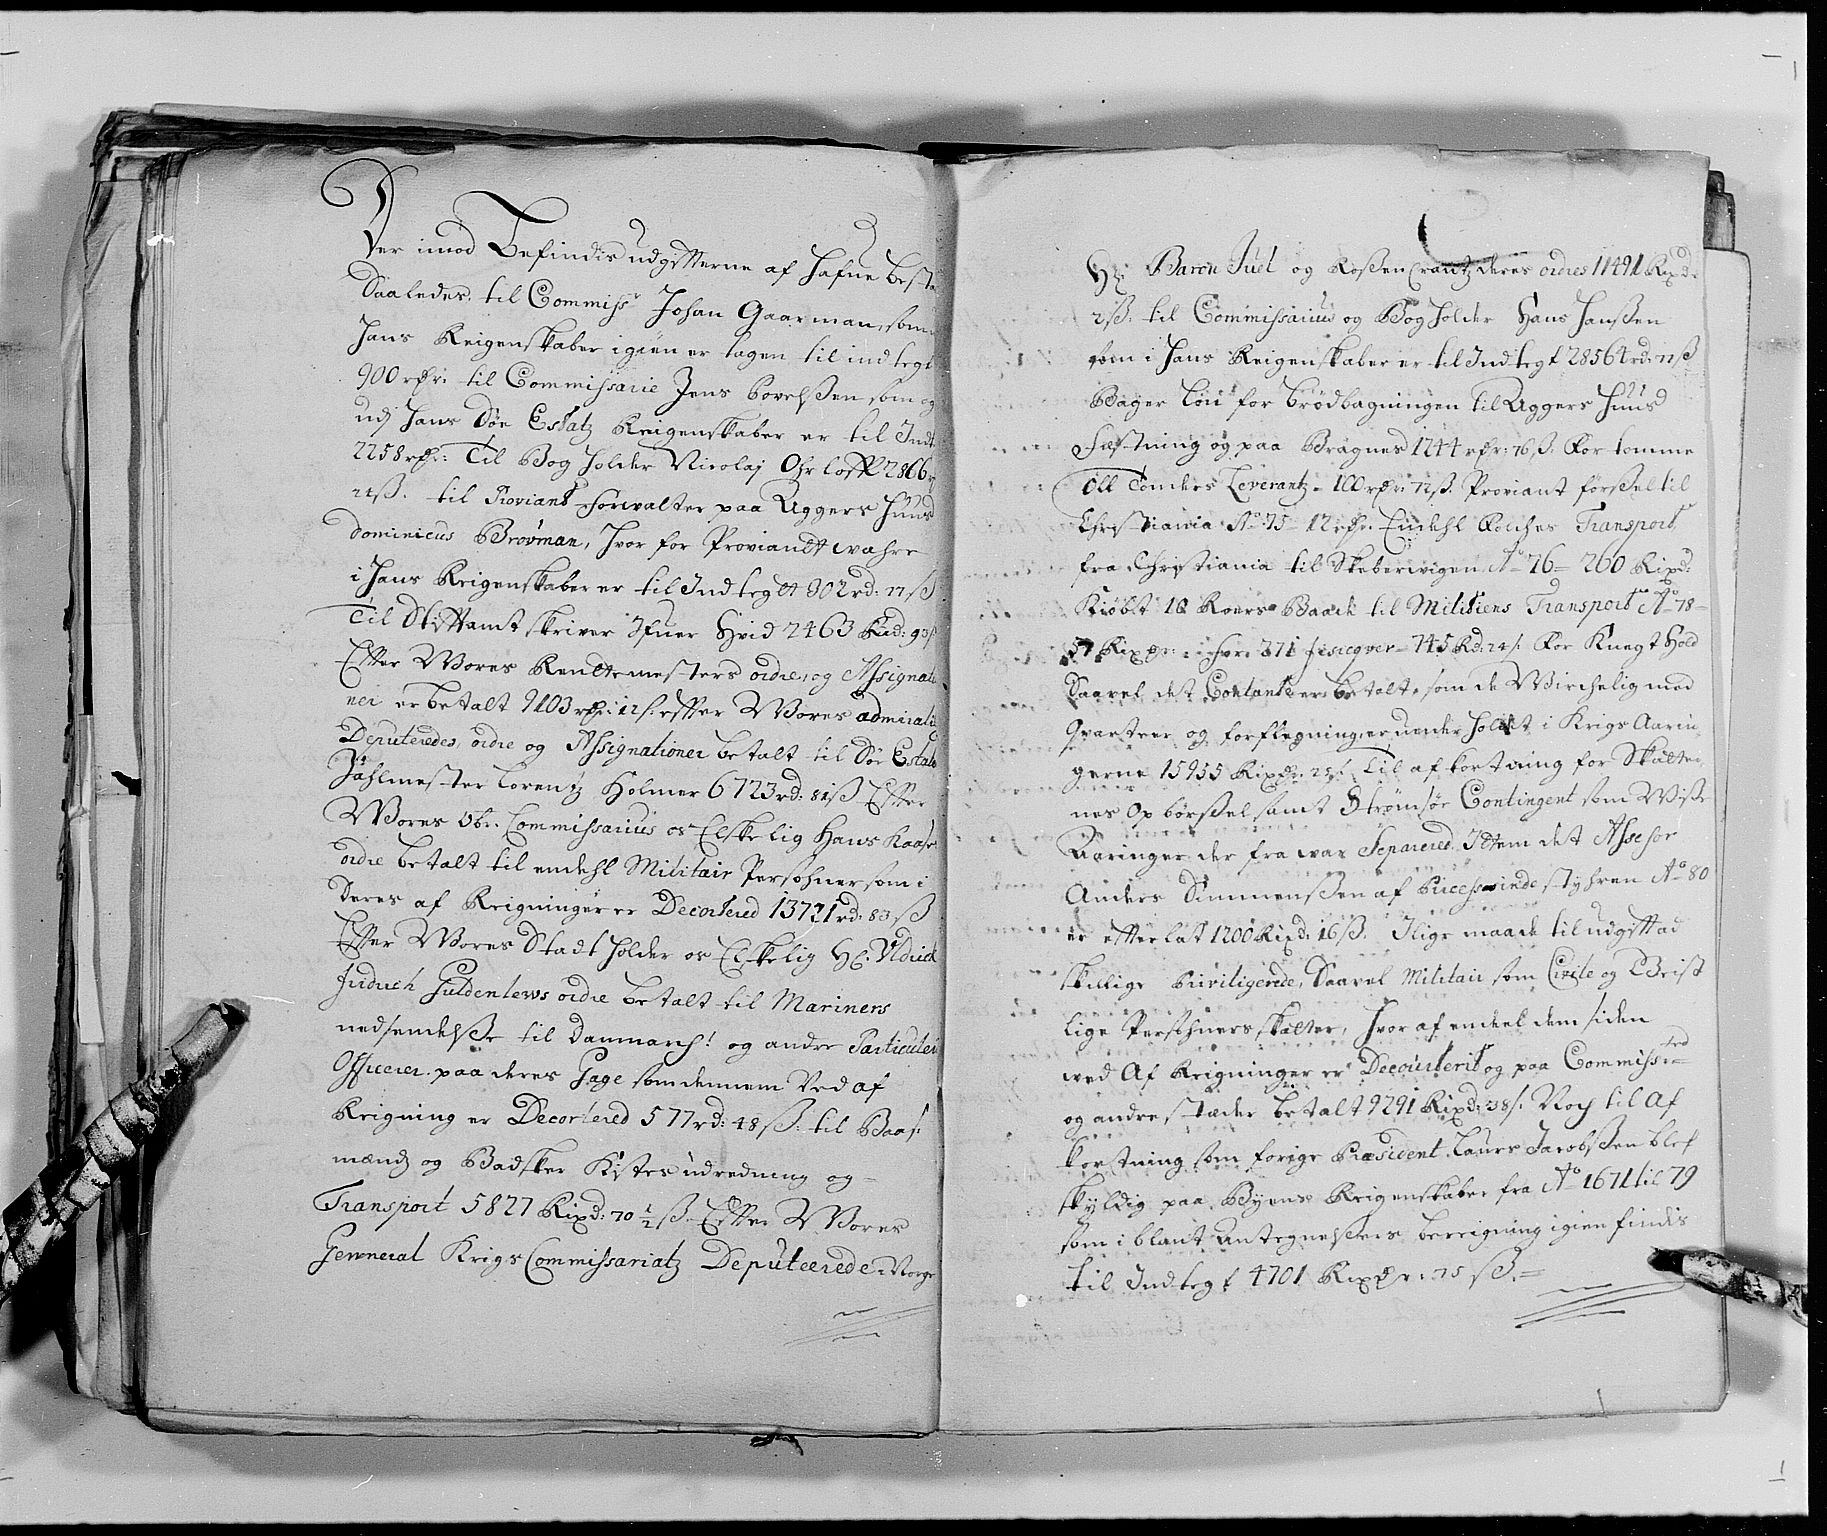 Der imod Befindis udgifterne af hafue best
Saaledes. til Commisſr Johan Gaarman, som
hans Reigenskaber igien er tagen til indtegt
900 rdr: til Commissarie Jens Bovelßen som og
udj hans Söe Estatz Reigenskaber er til Indt
2258 rdr: Til Bog holder Nicolaj Ohrloff 2866
til Proviant Forvalter paa Aggers Huus
Dominicus Brovman, hvor for Proviandt wahre
i hans Reigenskaber er til Indtegt 902 rd: 77 ß
Til Stiftamtskriver Ifuer Hvid 2463 Rixd: 93
Efter Wores Rendtemesters ordre, og Assignatio
ner er betalt 9103 rdr: 12 ſ. efter Wores admiralit
Deputeredes, ordre og Assignationer betalt til Söe Estats
Zahlmester Lorentz Holmer 6723 rd: 81 ß Efter
Wores Obr. Commissarius os Elskelig Hans Kaaſes
ordre betalt til endehl Militair Persohner som i
deres af Reigninger er Decortered 13721 rd: 83 ß
Efter Wores Stadtholder os Elskelig Hr. Uldrich
Fridrich Güldenlews ordre betalt til Mariners
nedsendelße til Danmarch! og andre Particulier
Officerer. paa deres Gage som dennem Ved af
Reigning er Decortered 577 rd: 48 ß: til Baas
mænd og Badsker Kistes udredning og =
Transport 5827 Rixd: 70 1/2 ß. Efter Wores
Genneral Krigs Commissariatz Deputerede i Norge
Hr: Baron Juel og Roßencrantz deres ordres 11491 Rixd:
2 ß: til Commissarius og Bog holder Hans Hanßen
som i hans Reigenskaber er til Indtegt 28564 rd: 77 ß
Bager Lön for brödbagningen til Aggers Huus
Fæstning og paa Bragnes 1244 rdr: 76 ß. For tomme
Öll Tönders Leverantz = 100 rdr: 72 ß. Proviant förßel til
Christiania Ao 75 = 12 rdr. Endehl Folches Transport
fra Christiania til Skeberwigen Ao 76 = 260 Rixd:
Kiöbt 1 Roers Baade til Militiens Transport Ao 78 =
57 Rixdr: for 271 = 745 Rd: 24 ſ. For Knegt Hold
Saavel det Contant er betalt, som de Wirchelig med
Qvarteer og forflegning er underholdt i Krigs Aarin
gerne 15955 Rixdr. 24 ſ. Til afkortning for Skatter
nes Opbörßel samt Strömsöe Contingent som Wisse
Aaringer der fra war Separered. Item det Assesor
Anders Simmenßen af styhren Ao 80
er efterlat 1200 Rixd: 16 ß. Iligemaade til udgift ad
skillige Priviligerede, Saavel Militair som Civile og Geist
lige Persohners skatter, hvor af endeel dem siden
wed Af Reigninger er Decourterit og paa Commiss:ted
og andre stæder betalt 9291 Rixd: 38 ſ. Noch til Af
kortning som forige Præsident Laurs Jacobßen blef
skyldig paa. Byens Reigenskaber fra Ao 1671 til 79
som i blant Antegnelßers bereigning igien findis
til Indtegt 4701 Rixdr: 75 ß. =